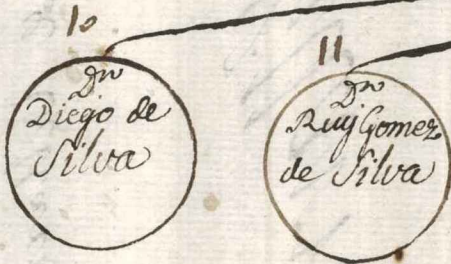 10
Dn
Diego de
Silva
11
Dn
Ruy Gomez
de Silva